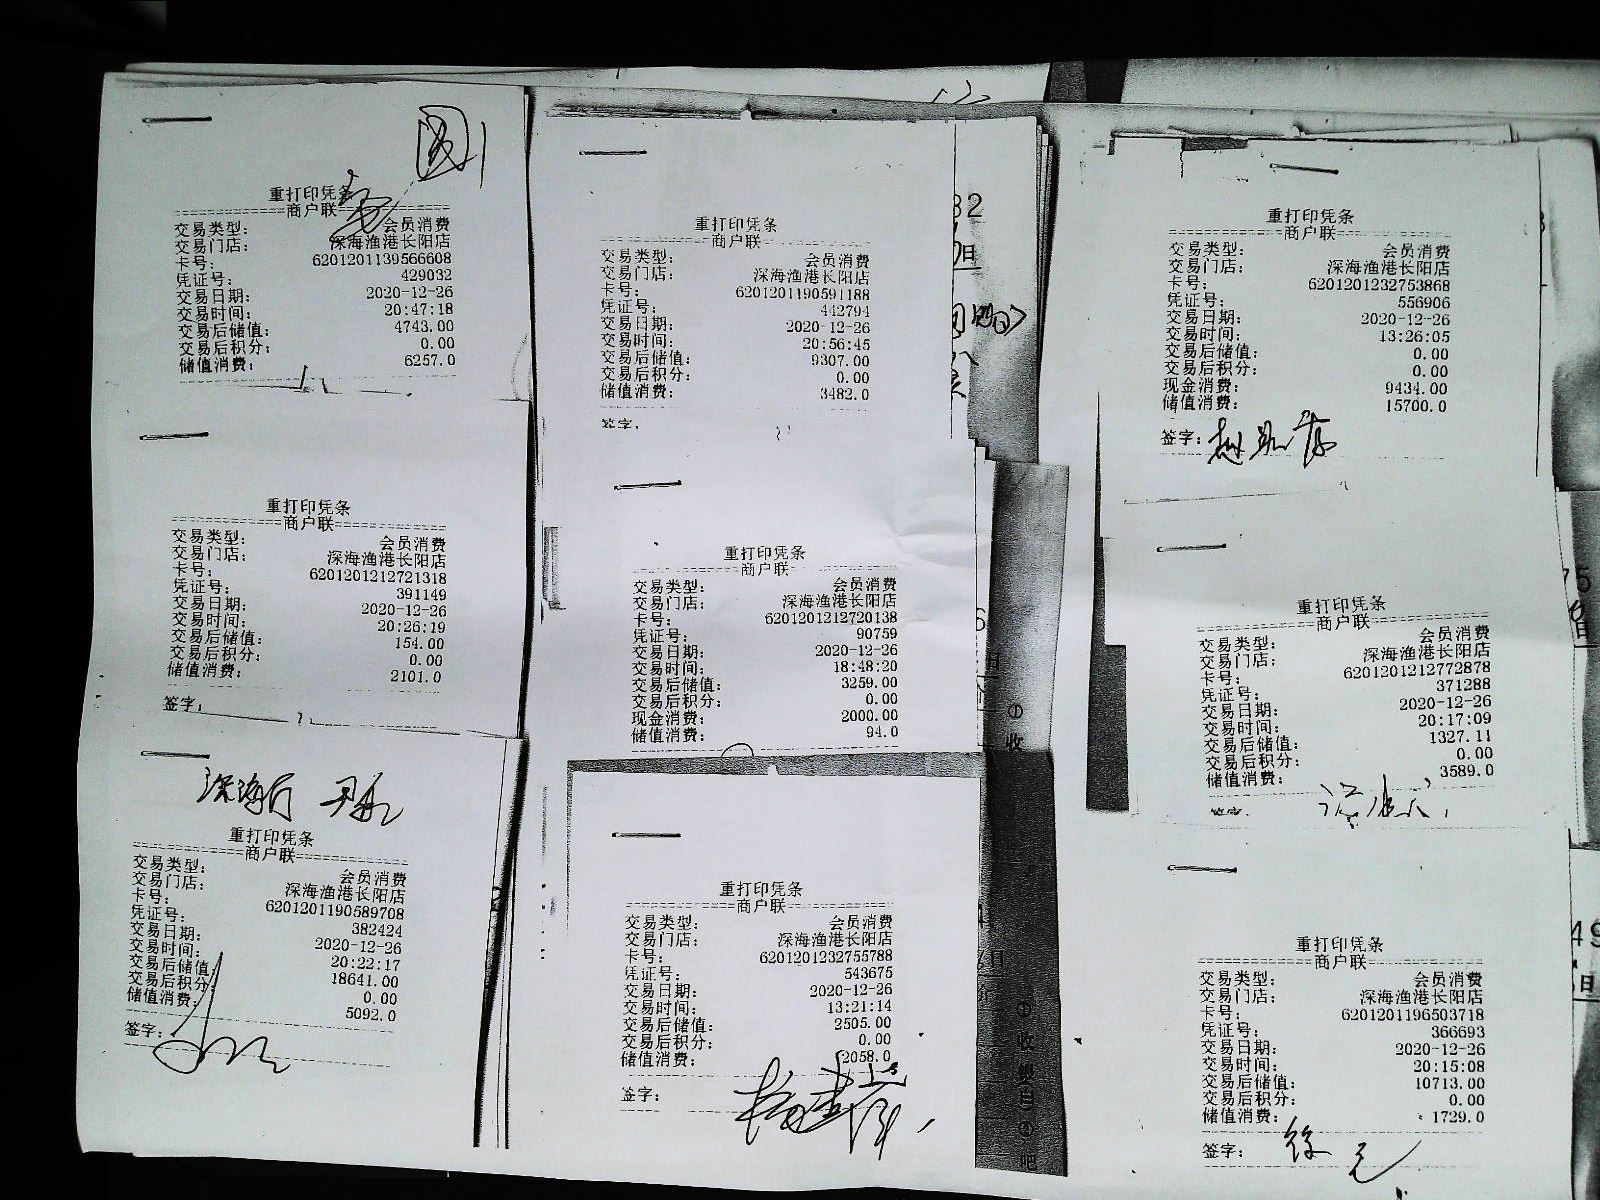 重打印凭条
商户联
交易类型： 会员消费
交易门店： 深海渔港长阳店
卡号： 6201201139566608
凭证号： 429032
交易日期： 2020-12-26
交易时间： 20:47:18
交易后储值： 4743.00
交易后积分： 0.00
储值消费： 6257.0
重打印凭条
商户联
交易类型： 会员消费
交易门店： 深海渔港长阳店
卡号： 6201201212721318
凭证号： 391149
交易日期： 2020-12-26
交易时间： 20:26:19
交易后储值： 154.00
交易后积分： 0.00
储值消费： 2101.0
签字：
重打印凭条
商户联
交易类型： 会员消费
交易门店： 深海渔港长阳店
卡号： 6201201190589708
凭证号： 382424
交易日期： 2020-12-26
交易时间： 20:22:17
交易后储值 18641.00
交易后积分 0.00
储值消费： 5092.0
签字：
重打印凭条
商户联
交易类型： 会员消费
交易门店： 深海渔港长阳店
卡号： 6201201190591188
凭证号： 442794
交易日期： 2020-12-26
交易时间： 20:56:45
交易后储值： 9307.00
交易后积分： 0.00
储值消费： 3482.0
重打印凭条
商户联
交易类型： 会员消费
交易门店： 深海渔港长阳店
卡号： 6201201212720138
凭证号： 90759
交易日期： 2020-12-26
交易时间： 18:48:20
交易后储值： 3259.00
交易后积分： 0.00
现金消费： 2000.00
储值消费： 94.0
重打印凭条
商户联
交易类型： 会员消费
交易门店： 深海渔港长阳店
卡号： 6201201232755788
凭证号： 543675
交易日期： 2020-12-26
交易时间： 13:21:14
交易后储值： 2505.00
交易后积分： 0.00
储值消费： 2058.0
签字：
重打印凭条
商户联
交易类型： 会员消费
交易门店： 深海渔港长阳店
卡号： 6201201232753868
凭证号： 556906
交易日期： 2020-12-26
交易时间： 13:26:05
交易后储值： 0.00
交易后积分： 0.00
现金消费： 9434.00
储值消费： 15700.0
签字：
重打印凭条
商户联
交易类型： 会员消费
交易门店： 深海渔港长阳店
卡号： 6201201212772878
凭证号： 371288
交易日期： 2020-12-26
交易时间： 20:17:09
交易后储值： 1327.11
交易后积分： 0.00
储值消费： 3589.0
重打印凭条
商户联
交易类型： 会员消费
交易门店： 深海渔港长阳店
卡号： 6201201196503718
凭证号： 366693
交易日期： 2020-12-26
交易时间： 20:15:08
交易后储值： 10713.00
交易后积分： 0.00
储值消费： 1729.0
签字：